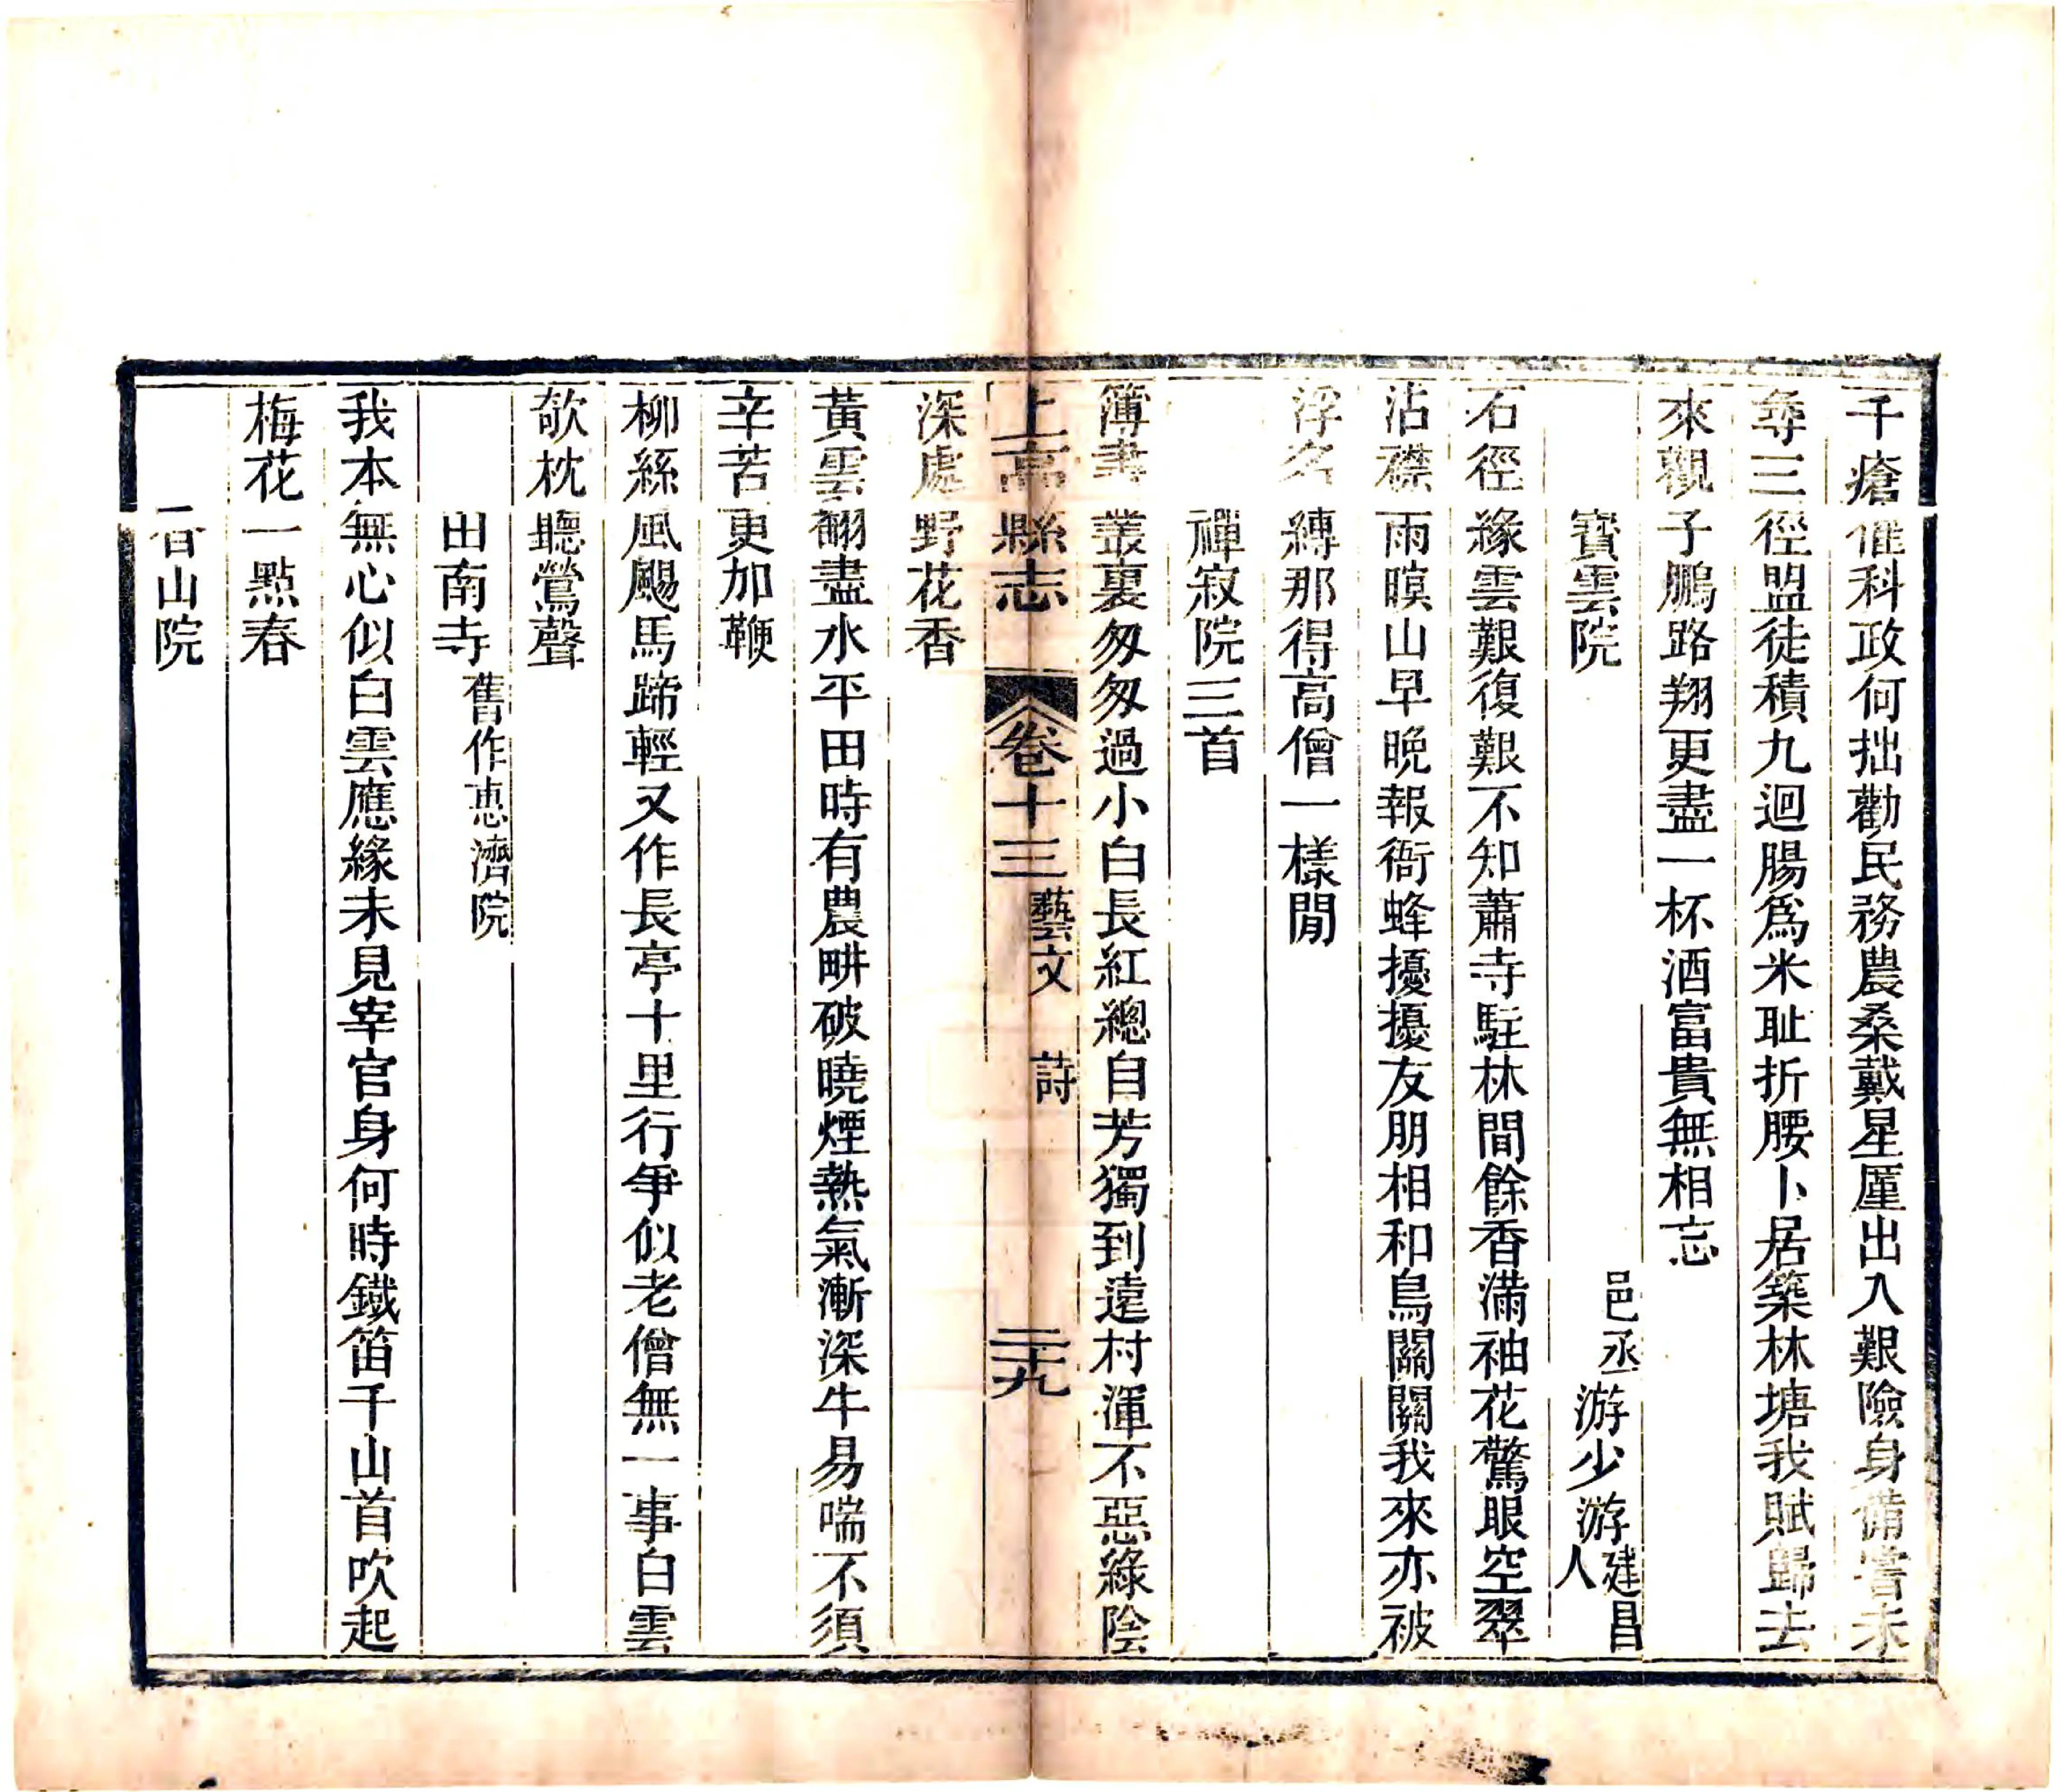 千瘡催科政何拙勸民務農桑戴星屢出入艱險身備嘗未
尋三徑盟徒積九迴腸爲米耻折腰卜居築林塘我賦歸去
來覩子鵬路翔更盡一杯酒富貴無相忘
寶雲院 邑丞游少游建昌人
石徑緣雲艱復艱不知蕭寺駐林間餘香滿袖花驚眼空翠
沾襟雨暝山早晚報衙蜂擾擾友朋相和鳥關關我來亦被
浮名縛那得高僧一樣閒
禪寂院三首
簿書叢裏匆匆過小白長紅總自芳獨到遠村渾不惡綠陰
上高縣志 卷十三 藝文 詩 二十九
深處野花香
黃雲翻盡水平田時有農畊破曉煙熱氣漸深牛易喘不須
辛苦更加鞭
柳絲風颺馬蹄輕又作長亭十里行爭似老僧無一事白雲
欹枕聽鶯聲
田南寺 舊作惠濟院
我本無心似白雲應緣未見宰官身何時鐵笛千山首吹起
梅花一點春
山院